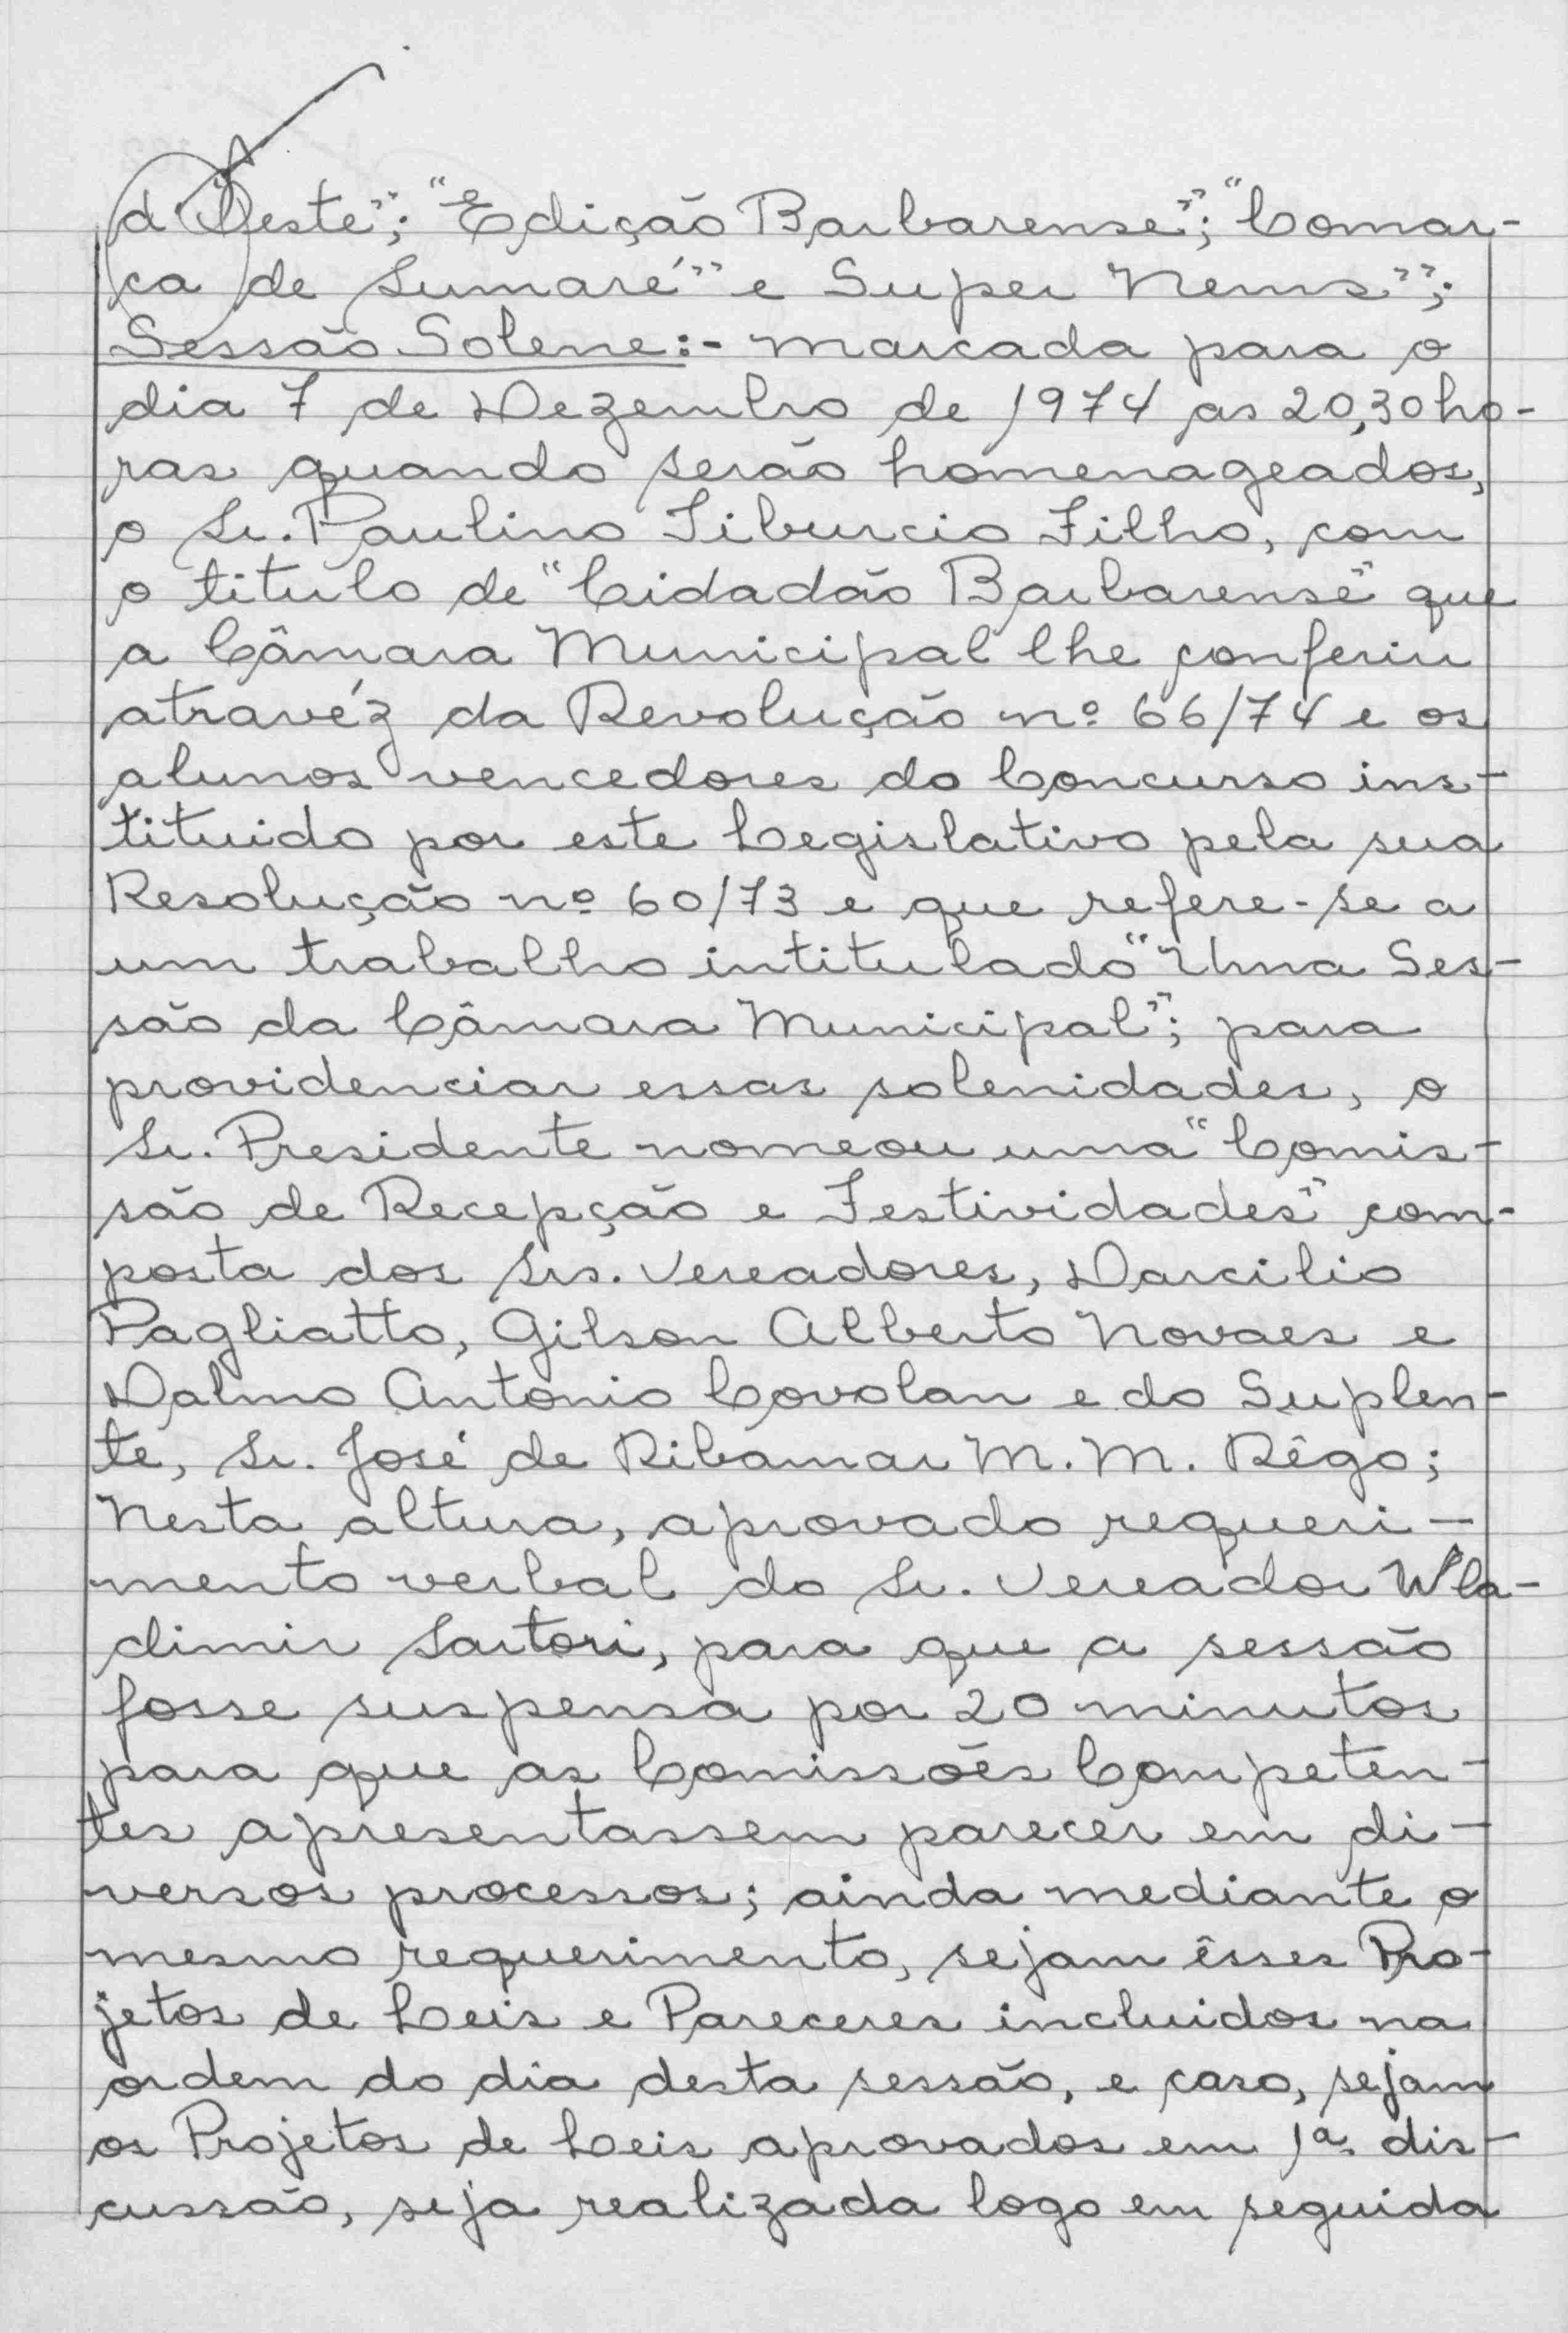 d'Oeste"; "Edição Barbarense"; "Comar-
ca de Sumaré" e Super News";
Sessão Solene:- marcada para o
dia 7 de Dezembro de 1974 as 20,30 ho-
ras quando serão homenageados,
o Sr. Paulino Tiburcio Filho, com
o titulo de "Cidadão Barbarense" que
a Câmara Municipal lhe conferiu
atravéz da Revolução nº 66/74 e os
alunos vencedores do Concurso ins-
tituido por este Legislativo pela sua
Resolução nº 60/73 e que refere-se a
um trabalho intitulado "Uma Ses-
são da Câmara Municipal"; para
providenciar essas solenidades, o
Sr. Presidente nomeou uma "Comis-
são de Recepção e Festividades" com-
posta dos Srs. Vereadores, Darcilio
Pagliatto, Gilson Alberto Novaes e
Dalmo Antonio Covolan e do Suplen-
te, Sr. José de Ribamar M. M. Rêgo;
Nesta altura, aprovado requeri-
mento verbal do Sr. Vereador Wla-
dimir Sartori, para que a sessão
fosse suspensa por 20 minutos
para que as Comissões Competen-
tes apresentassem parecer em di-
versos processos; ainda mediante o
mesmo requerimento, sejam êsses Pro-
jetos de Leis e Pareceres incluidos na
ordem do dia desta sessão, e caso, sejam
os Projetos de Leis aprovados em 1ª dis-
cussão, seja realizada logo em seguida